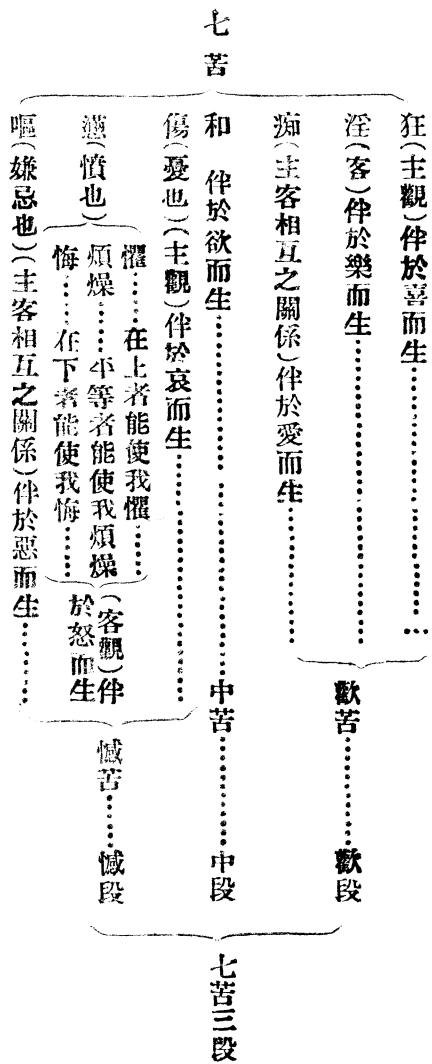 七苦
狂(主觀)伴於喜而生…………
淫(客)伴於樂而生…………
痴(主客相互之關係)伴於愛而生…………
歡苦…………歡段
和 伴於欲而生…………中苦…………中段
傷(憂也)(主觀)伴於哀而生…………
懣(憤也)
懼……在上者能使我懼……
煩燥……平等者能使我煩燥
悔……在下者能使我悔……
(客觀)伴
於怒而生
嘔(嫌忌也)(主客相互之關係)伴於惡而生……
慽苦……慽段
七苦三段